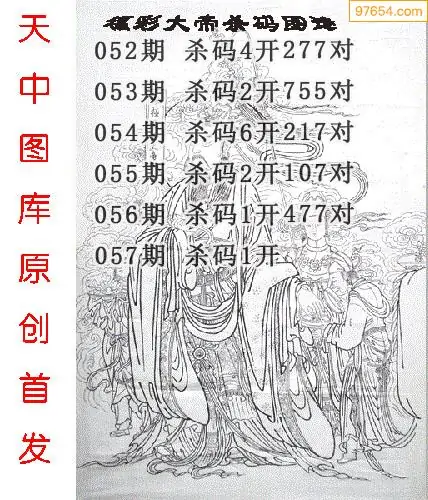 97654.com
福彩大帝杀码图迷
052期 杀码4开277对
053期 杀码2开755对
054期 杀码6开217对
055期 杀码2开107对
056期 杀码1开477对
057期 杀码1开
天中图库原创首发